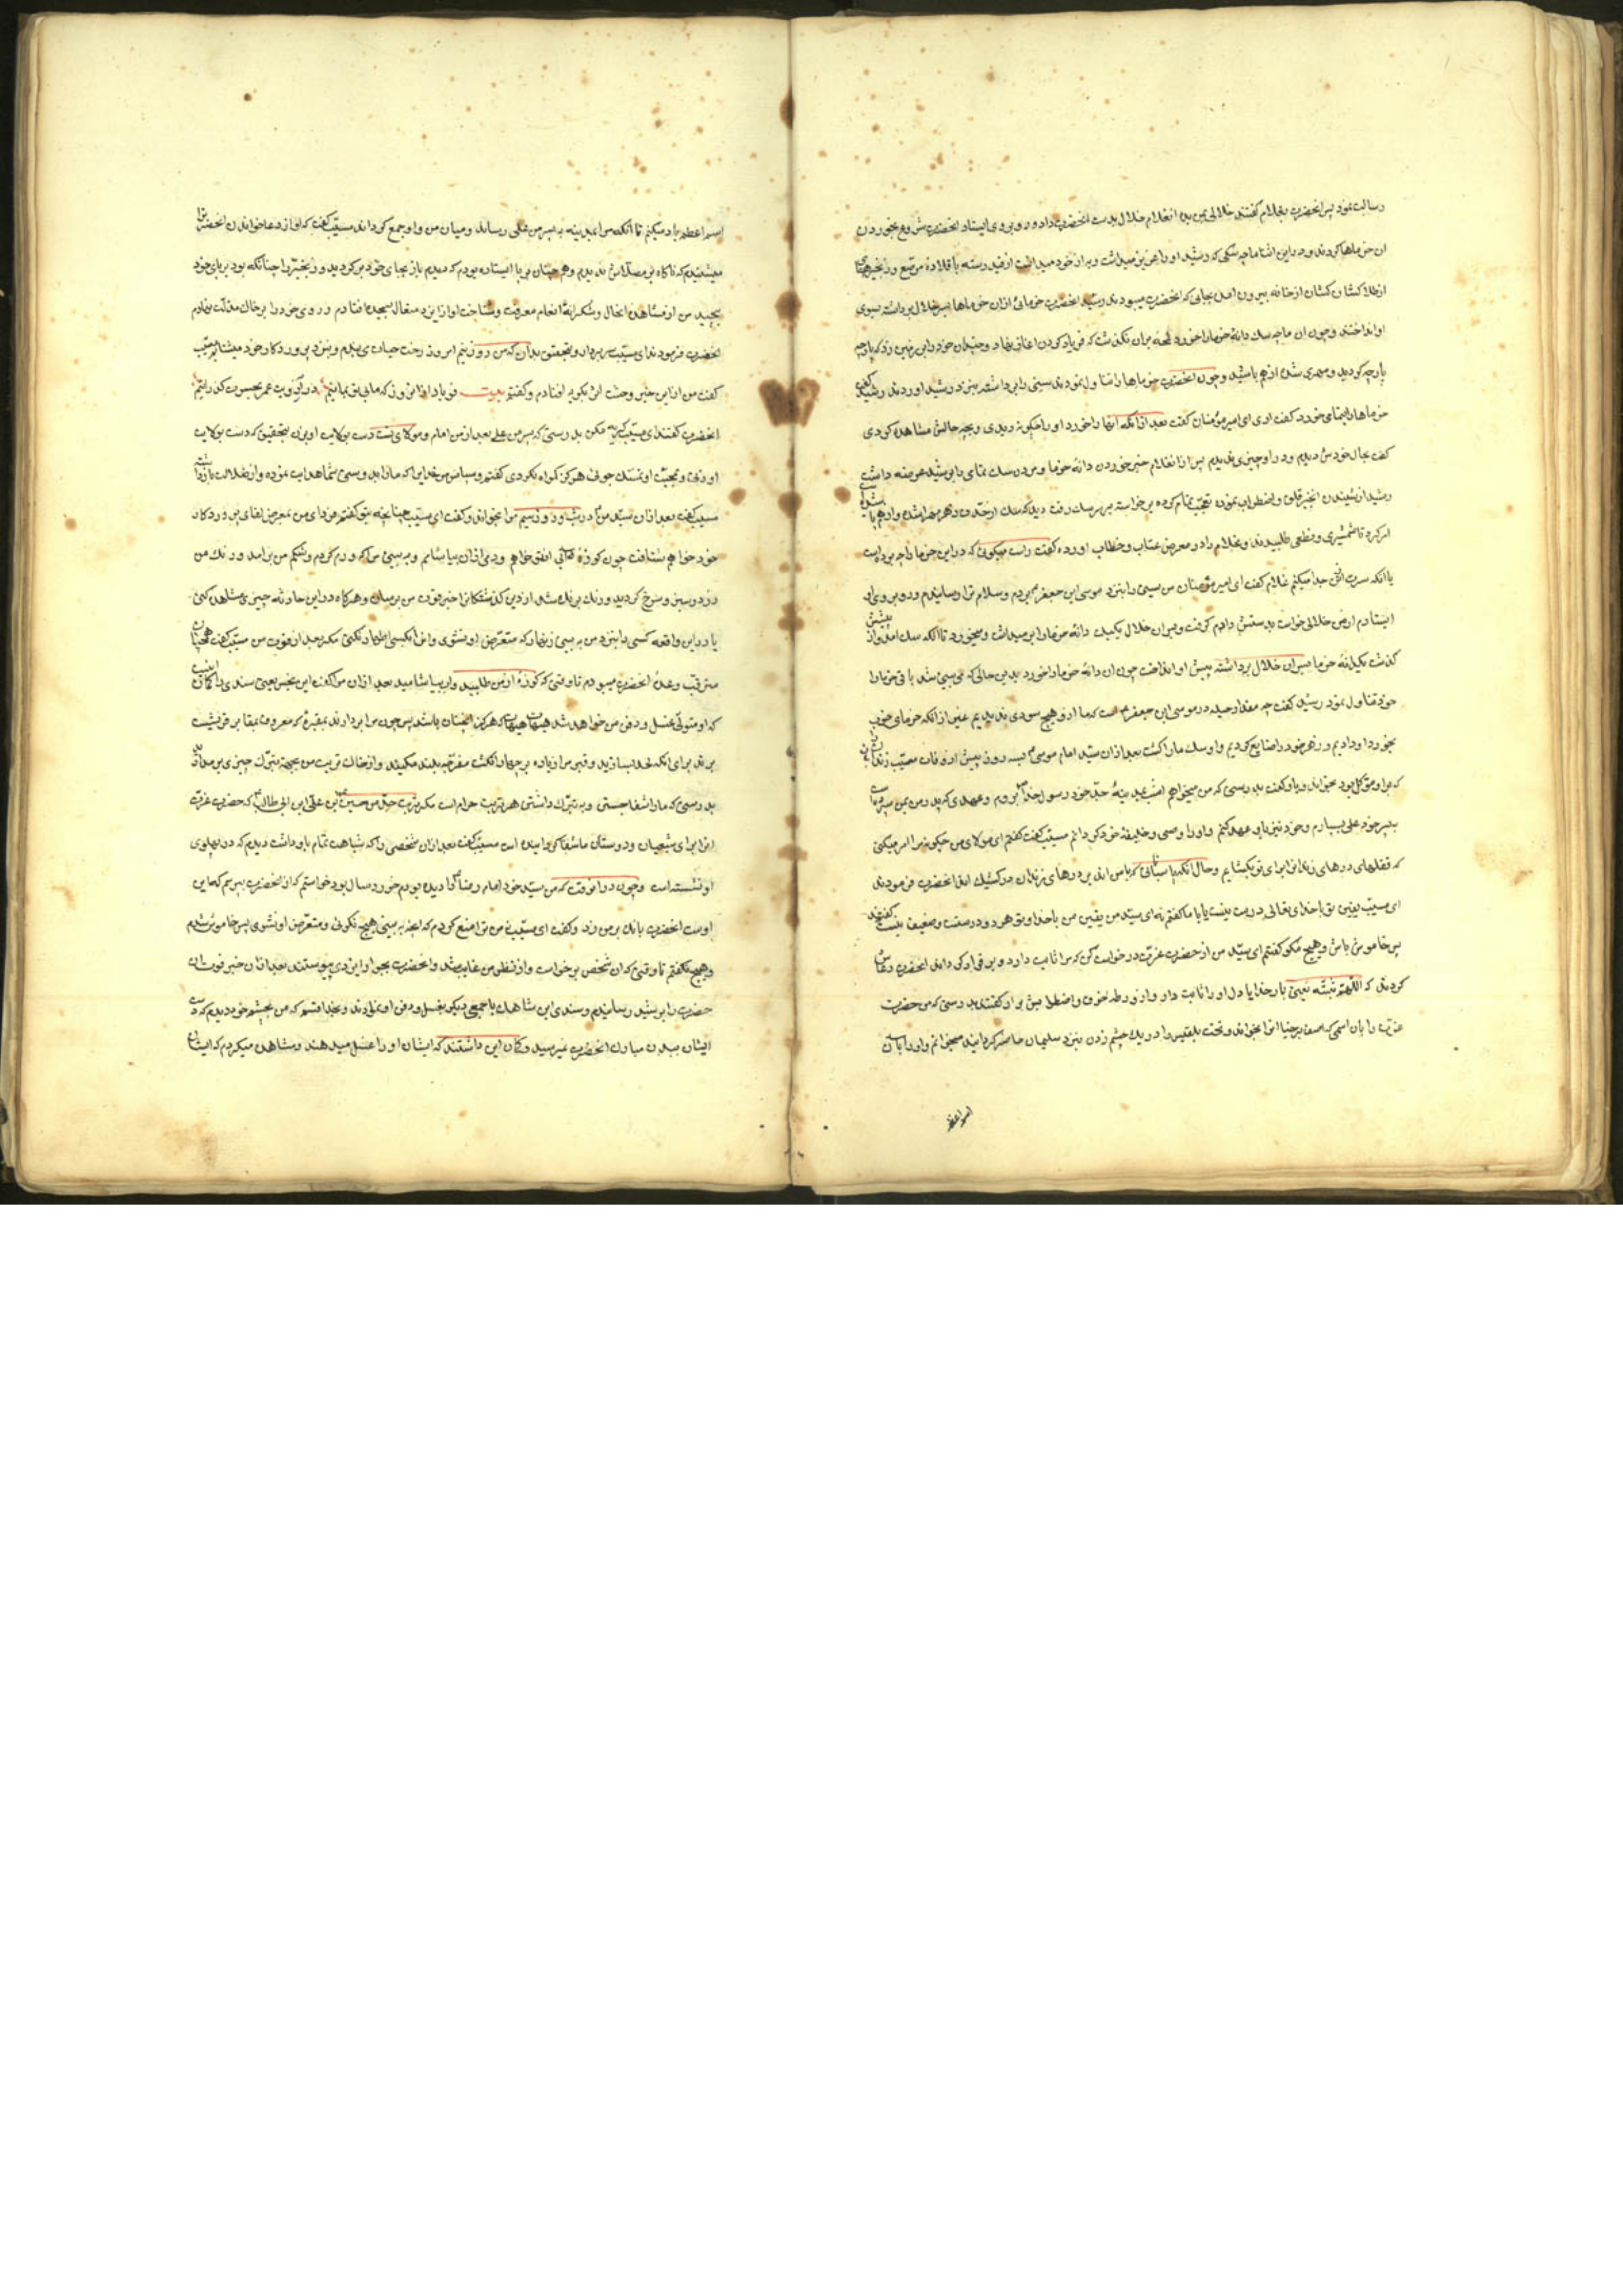 رسالت نمود پس انحضرت بغلام گفتند خلالی بمن بده انغلام خلال بدست انحضرت داد و روبروی ایستاد انحضرت شروع بخوردن
ان خرماها کردند و در این اثنا ماچه سکی که رشید او را عزیز میداشت و به از خود میدانست از قید رسته با قلاده مرصع و زنجیرهای
از طلا کشان کشان از خانه بیرون امد بجائی که انحضرت میبودند رسید انحضرت خرمائی ازان خرماها بسر خلال برداشته بسوی
او انداختند و چون ان ماچه سک دانه خرما را خورد لمحه بران نکذشت که فریاد کردن اغاز نهاد و چندان خود را بر زمین زد که پارچه
پارچه کردید و مهری شده از هم پاشید و چون انحضرت خرماها را تناول نمودند سینی را برداشته بنزد رشید اوردند رشید گفت
خرماها را بتمامی خورد گفت اری ای امیر مؤمنان گفت بعد از انکه انها را خورد او را چکونه دیدی و بچه حالش مشاهده کردی
گفت بحال خودش دیدم و در او چیزی ندیدم پس از انغلام خبر خوردن دانه خرما و مردن سک بتمامی را برشید عرضه داشت
رشید از شنیدن انخبر قلق و اضطراب نموده تعجب تمام کرده برخاسته بر سر سک رفت دید که سک از حدّت زهر مهرا شده و از هم پاشیده
امر کرد تا شمشیری و نطعی طلبیدند و غلام را در معرض عتاب و خطاب اورده گفت راست میکوئی که در این خرما را چه بر داشت
یا انکه سرت را جدا میکنم غلام گفت ای امیر مؤمنان من سینی را بنزد موسی ابن جعفر بردم و سلام ترا رسانیدم و روبروی او
ایستادم از من خلالی خواست بدستش دادم گرفت و بسران خلال یکیک دانه خرما را بر میداشت و میخورد تا انکه سک امد و از پیشش
کذشت یکدانه خرما بسران خلال برداشته پیش او انداخت چون ان دانه خرما را خورد بدین حالی که می بینی شد باقی خرما را
خود تناول نمود رشید گفت چه مقدار حیله در موسی ابن جعفر است که ما از و هیچ سودی ندیدیم غیر از انکه خرمای خوب
بخورد او دادیم و زهر خود را ضایع کردیم و او سک ما را کشت بعد ازان سیّد امام موسی بسه روز پیش از وفات مسیّب زندانبان را
که بر او موکل بود بخواند و با او گفت بدرستی که من میخواهم امشب بمدینه جدّ خود رسول خدا بروم و عهدی که پدر من بمن سپرده است
به پسر خود علی بسپارم و خود نیز باو عهد کنم و او را وصی و خلیفه خود کردانم مسیّب گفت گفتم ای مولای من چکونه مرا امر میکنی
که قفلهای درهای زندان را برای تو بکشایم و حال انکه پاسبانانی که پاس اند بر درهای زندان مر کشیک اند انحضرت فرمودند
ای مسیّب یقین تو باخدای تعالی درست نیست یا با ما گفتم نه ای سیّد من یقین من باخدا و تو هر دو درست و ضعیف نیست گفتند
پس خاموش باش و هیچ مکو گفتم ای سیّد من از حضرت عزّت درخواست کن که مرا ثابت دارد و برقرار کرداند انحضرت دعا
کردند که اللهم ثبته یعنی بار خدایا دل او را ثابت دار و از ورطه خوف و اضطرابش برار گفتند بدرستی که من حضرت
عزت را بان اسمی که اصف برخیا انرا بخواند و تخت بلقیس را در یک چشم زدن بنزد سلیمان حاضر کردانید میخوانم و او را بان
اسم اعظم
اسم اعظم یاد میکنم تا انکه مرا بمدینه به پسر من علی رساند و میان من و او جمع کرداند مسیّب گفت که اواز دعا خواندن انحضرت را
میشنیدم که ناکاه بر مصلّاش ندیدم و هم چنان بر پا ایستاده بودم که دیدم باز بجای خود بر کردید و زنجیر را چنانکه بود بر پای خود
پیچید من از مشاهده انحال و شکرانه انعام معرفت و شناخت او از ایزد متعال بسجده افتادم و روی خود را بر خاک مذلّت نهادم
انحضرت فرمودند ای مسیّب سر بردار و بتحقیق بدان که من روز سیم امروز رخت حیات می بندم و بنزد پروردکار خود میشتابم مسیّب
گفت من از این خبر وحشت اثر بکریه افتادم و گفتم بیت فریاد از انروز که ما بی تو بمانیم در آرزویت عمر بحسرت کذرانیم
انحضرت گفتند ای مسیّب کریه مکن بدرستی که پسر من علی بعد از من امام و مولای تست دست بولایت او بزن بتحقیق که دست بولایت
او زدی و بمحبّت او تمسّک جوئی هرکز کمراه نکردی گفتم و سپاس مر خدایرا که ما را بدوستی شما هدایت نموده و از ضلالت بازداشته
مسیّب گفت بعد ازان سیّد من در شب روز سیم مرا بخواند و گفت ای مسیّب همچنانچه بتو گفتم فردای من بمعرض لقای پروردکار
خود خواهم شتافت چون کوزه ابی از تو خواهم و دمی ازان بیاشامم و به بینی مرا که ورم کردم و شکم من برامد و رنک من
زرد و سبز و سرخ کردید و رنک برنک شد از دین کذشتکان را خبر فوت من برسان و هرکاه در این حادثه چیزی مشاهده کنی
یا در این واقعه کسی را بنزد من به بینی زنهار که متعرّض او نشوی و انرا بکسی اظهار نکنی مکر بعد از فوت من مسیّب گفت همچنان
مترقب وعده انحضرت میبودم تا وقتی که کوزه از من طلبید و ان بیاشامید بعد ازان مرا گفت این نجس یعنی سندی را کمان اینست
که او متولّی غسل و دفن من خواهد شد هیهات هیهات که هرکز انچنان باشد پس چون مرا بردارند بمقبره که معروف بمقابر قریشت
برند برای انکه لحد بسازید و قبر مرا زیاده بر چهار انکشت مفرّجه بلند مکنید و از خاک تربت من بجهت تبرّک چیزی بر مدارید
بدرستی که ما را شفا جستن و به تبرّک داشتن هر تربت حرام است مکر تربت جدّ من حسین ابن علی ابن ابی طالب که حضرت عزّت
انرا برای شیعیان و دوستان ما شفا کردانیده است مسیّب گفت بعد ازان شخصی را که شباهت تمام باو داشت دیدم که در پهلوی
او نشسته است و چون در انوقت که من سیّد خود امام رضا را دیده بودم خورد سال بود خواستم که از انحضرت بپرسم که این
اوست انحضرت بانک بر من زد و گفت ای مسیّب نه من تو را منع کردم که انچه به بینی هیچ نکوئی و متعرّض او نشوی پس خاموش شدم
و هیچ نکفتم تا وقتی که ان شخص برخواست و از نظر من غایب شد و انحضرت بجوار ایزدی پیوستند بعد ازان خبر فوت ان
حضرت را برشید رسانیدم و سندی ابن شاهک با جمعی دیکر بغسل و دفن او بیامدند و بخدا قسم که من بچشم خود دیدم که دست
ایشان ببدن مبارک انحضرت نمیرسید و کمان این داشتند که ایشان او را غسل میدهند و مشاهده میکردم که ایشان